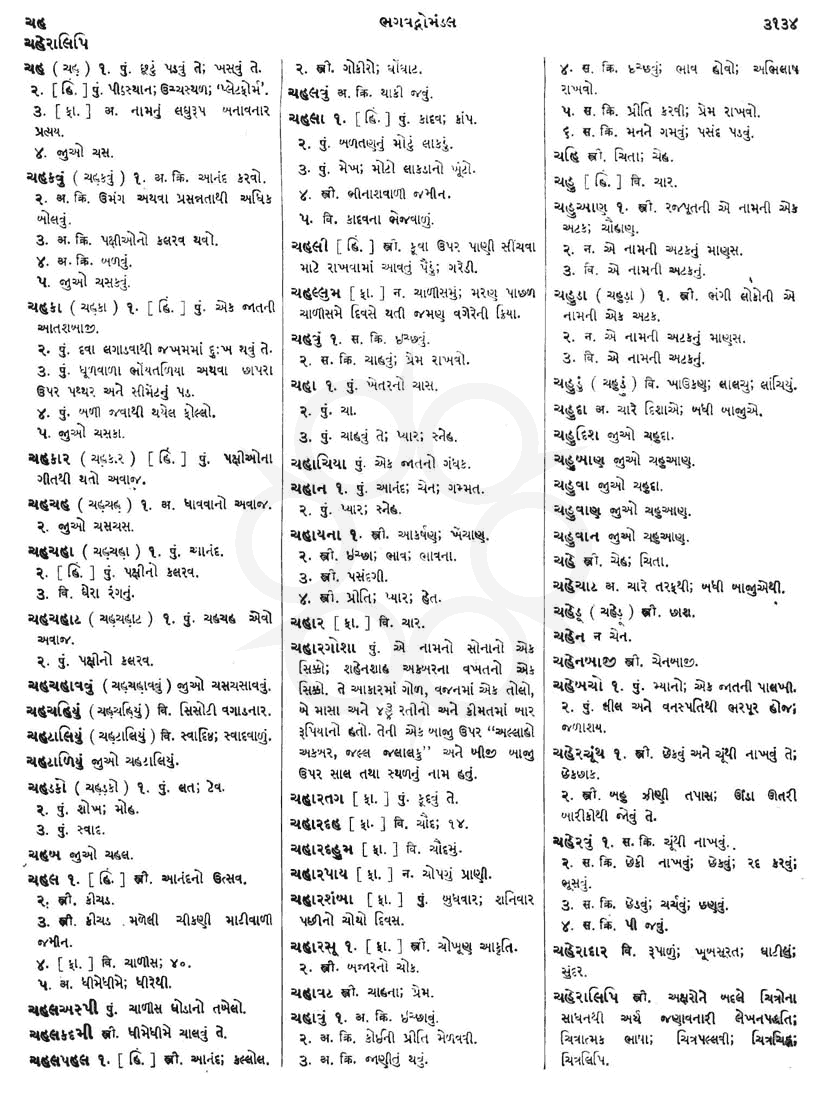 ચહ
ભગવદ્ગોમંડલ
૩૧૩૪
ચહેરાલિપિ
ચહ ( ચહ્‍ ) ૧. પું. છૂટું પડવું તે; ખસવું તે.
૨. [ હિં. ] પું. પીઠસ્થાન; ઉચ્ચસ્થળ; ‘પ્લેટફોર્મ’.
૩. [ ફા. ] અ. નામનું લઘુરૂપ બનાવનાર
પ્રત્યય.
૪. જુઓ ચસ.
ચહકવું ( ચહ્‍કવું ) ૧. અ. ક્રિ. આનંદ કરવો.
૨. અ. ક્રિ. ઉમંગ અથવા પ્રસન્નતાથી અધિક
બોલવું.
૩. અ. ક્રિ. પક્ષીઓનો કલરવ થવો.
૪. અ. ક્રિ. બળવું.
૫. જુઓ ચસકવું.
ચહકા ( ચહ્‍કા ) ૧. [ હિં. ] પું. એક જાતની
આતશબાજી.
૨. પું. દવા લગાડવાથી જખમમાં દુઃખ થવું તે.
૩. પું. ધૂળવાળા ભોંયતળિયા અથવા છાપરા
ઉપર પથ્થર અને સીમેંટનું પડ.
૪. પું. બળી જવાથી થયેલ ફોલ્લો.
૫. જુઓ ચસકા.
ચહકાર ( ચહ્‍કાર ) [ હિં. ] પું. પક્ષીઓના
ગીતથી થતો અવાજ.
ચહચહ ( ચહ્‍ચહ્‍ ) ૧. અ. ધાવવાનો અવાજ.
૨. જુઓ ચસચસ.
ચહચહા ( ચહ્‍ચહા ) ૧. પું. આનંદ.
૨. [ હિં. ] પું. પક્ષીનો કલરવ.
૩. વિ. ઘેરા રંગનું.
ચહચહાટ ( ચહ્‍ચહાટ ) ૧. પું. ચહચહ એવો
અવાજ.
૨. પું. પક્ષીનો કલરવ.
ચહચહાવવું ( ચહ્‍ચહાવવું ) જુઓ ચસચસાવવું.
ચહચહિયું ( ચહ્‍ચહિયું ) વિ. સિસોટી વગાડનાર.
ચહટાલિયું ( ચહ્‍ટાલિયું ) વિ. સ્વાદિષ્ટ; સ્વાદવાળું.
ચહટાળિયું જુઓ ચહટાલિયું.
ચહડકો ( ચહ્‍ડ્‍કો ) ૧. પું. લત; ટેવ.
૨. પું. શોખ; મોહ.
૩. પું. સ્વાદ.
ચહબ જુઓ ચહલ.
ચહલ ૧. [ હિં. ] સ્ત્રી. આનંદનો ઉત્સવ.
૨. સ્ત્રી. કીચડ.
૩. સ્ત્રી. કીચડ મળેલી ચીકણી માટીવાળી
જમીન.
૪. [ ફા. ] વિ. ચાળીસ; ૪૦.
૫. અ. ધીમેધીમે; ધીરેથી.
ચહલઅસ્પી પું. ચાળીસ ઘોડાનો તબેલો.
ચહલકદમી સ્ત્રી. ધીમેધીમે ચાલવું તે.
ચહલપહલ ૧. [ હિં. ] સ્ત્રી. આનંદ; કલ્લોલ.
૨. સ્ત્રી. ગોકીરો; ઘોંઘાટ.
ચહલવું અ. ક્રિ. થાકી જવું.
ચહલા ૧. [ હિં. ] પું. કાદવ; કાંપ.
૨. પું. બળતણનું મોટું લાકડું.
૩. પું. મેખ; મોટો લાકડાનો ખૂંટો.
૪. સ્ત્રી. ભીનારાવાળી જમીન.
૫. વિ. કાદવના ભેજવાળું.
ચહલી [ હિં. ] સ્ત્રી. કૂવા ઉપર પાણી સીંચવા
માટે રાખવામાં આવતું પૈડું; ગરેડી.
ચહલ્લુમ [ ફા. ] ન. ચાળીસમું; મરણ પાછળ
ચાળીસમે દિવસે થતી જમણ વગેરેની ક્રિયા.
ચહવું ૧. સ. ક્રિ. ઇચ્છવું.
૨. સ. ક્રિ. ચાહવું; પ્રેમ રાખવો.
ચહા ૧. પું. ખેતરનો ચાસ.
૨. પું. ચા.
૩. પું. ચાહવું તે; પ્યાર; સ્નેહ.
ચહાચિયા પું. એક જાતનો ગંધક.
ચહાન ૧. પું. આનંદ; ચેન; ગમ્મત.
૨. પું. પ્યાર; સ્નેહ.
ચહાયના ૧. સ્ત્રી. આકર્ષણ; ખેંચાણ.
૨. સ્ત્રી. ઇચ્છા; ભાવ; ભાવના.
૩. સ્ત્રી. પસંદગી.
૪. સ્ત્રી. પ્રીતિ; પ્યાર; હેત.
ચહાર [ ફા. ] વિ. ચાર.
ચહારગોશા પું. એ નામનો સોનાનો એક
સિક્કો; શહેનશાહ અકબરના વખતનો એક
સિક્કો. તે આકારમાં ગોળ, વજનમાં એક તોલો,
બે માસા અને રતીનો અને કીમતમાં બાર
રૂપિયાનો હતો. તેની એક બાજુ ઉપર “અલ્લાહો
અકબર, જલ્લ જલાલકુ” અને બીજી બાજુ
ઉપર સાલ તથા સ્થળનું નામ હતું.
ચહારતગ [ ફા. ] પું. કૂદવું તે.
ચહારદહ [ ફા. ] વિ. ચૌદ; ૧૪.
ચહારદહુમ [ ફા. ] વિ. ચૌદમું.
ચહારપાય [ ફા. ] ન. ચોપગું પ્રાણી.
ચહારશંબા [ ફા. ] પું. બુધવાર; શનિવાર
પછીનો ચોથો દિવસ.
ચહારસૂ ૧. [ ફા. ] સ્ત્રી. ચોખૂણ આકૃતિ.
૨. સ્ત્રી. બજારનો ચોક.
ચહાવટ સ્ત્રી. ચાહના; પ્રેમ.
ચહાવું ૧. અ. ક્રિ. ઇચ્છાવું.
૨. અ. ક્રિ. કોઈની પ્રીતિ મેળવવી.
૩. અ. ક્રિ. જાણીતું થવું.
૪. સ. ક્રિ. ઇચ્છવું; ભાવ હોવો; અભિલાષ
રાખવો.
૫. સ. ક્રિ. પ્રીતિ કરવી; પ્રેમ રાખવો.
૬. સ. ક્રિ. મનને ગમવું; પસંદ પડવું.
ચહિ સ્ત્રી. ચિતા; ચેહ.
ચહુ [ હિં. ] વિ. ચાર.
ચહુઆણ ૧. સ્ત્રી. રજપૂતની એ નામની એક
અટક; ચૌહાણ.
૨. ન. એ નામની અટકનું માણસ.
૩. વિ. એ નામની અટકનું.
ચહુડા ( ચહુડા ) ૧. સ્ત્રી. ભંગી લોકોની એ
નામની એક અટક.
૨. ન. એ નામની અટકનું માણસ.
૩. વિ. એ નામની અટકનું.
ચહુડું ( ચહુડું ) વિ. ખાઉકણ; લાલચુ; લાંચિયું.
ચહુદા અ. ચારે દિશાએ; બધી બાજુએ.
ચહુદિશ જુઓ ચહુદા.
ચહુબાણ જુઓ ચહુઆણ.
ચહુવા જુઓ ચહુદા.
ચહુવાણ જુઓ ચહુઆણ.
ચહુવાન જુઓ ચહુઆણ.
ચહે સ્ત્રી. ચેહ; ચિતા.
ચહેચાટ અ. ચારે તરફથી; બધી બાજુએથી.
ચહેડૂ ( ચહેડૂ ) સ્ત્રી. છાશ.
ચહેન ન ચેન.
ચહેનબાજી સ્ત્રી. ચેનબાજી.
ચહેબચો ૧. પું. મ્યાનો; એક જાતની પાલખી.
૨. પું. લીલ અને વનસ્પતિથી ભરપૂર હોજ;
જળાશય.
ચહેરચૂંથ ૧. સ્ત્રી. છેકવું અને ચૂંથી નાખવું તે;
છેકછાક.
૨. સ્ત્રી. બહુ ઝીણી તપાસ; ઊંડા ઊતરી
બારીકીથી જોવું તે.
ચહેરવું ૧. સ. ક્રિ. ચૂંથી નાખવું.
૨. સ. ક્રિ. છેકી નાખવું; છેકવું; રદ કરવું;
ભૂસવું.
૩. સ. ક્રિ. છેડવું; ચર્ચવું; છણવું.
૪. સ. ક્રિ. પી જવું.
ચહેરાદાર વિ. રૂપાળું; ખૂબસૂરત; ઘાટીલું;
સુંદર.
ચહેરાલિપિ સ્ત્રી. અક્ષરોને બદલે ચિત્રોના
સાધનથી અર્થ જણાવનારી લેખનપદ્ધતિ;
ચિત્રાત્મક ભાષા; ચિત્રપલ્લવી; ચિત્રચિહ્ન;
ચિત્રલિપિ.